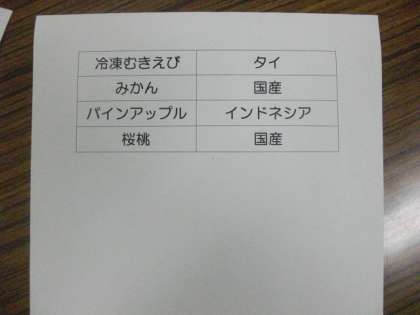 冷凍むきえび タイ
みかん 国産
パインアップル インドネシア
桜桃 国産